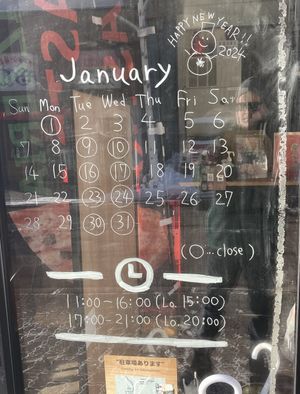 HAPPY NEW YEAR!!
2024
January
Sun Mon Tue Wed Thu Fri Sat
1 2 3 4 5 6
7 8 9 10 11 12 13
14 15 16 17 18 19 20
21 22 23 24 25 26 27
28 29 30 31
(○…close)
11:00-16:00 (Lo. 15:00)
17:00-21:00 (Lo. 20:00)
"駐車場あります"